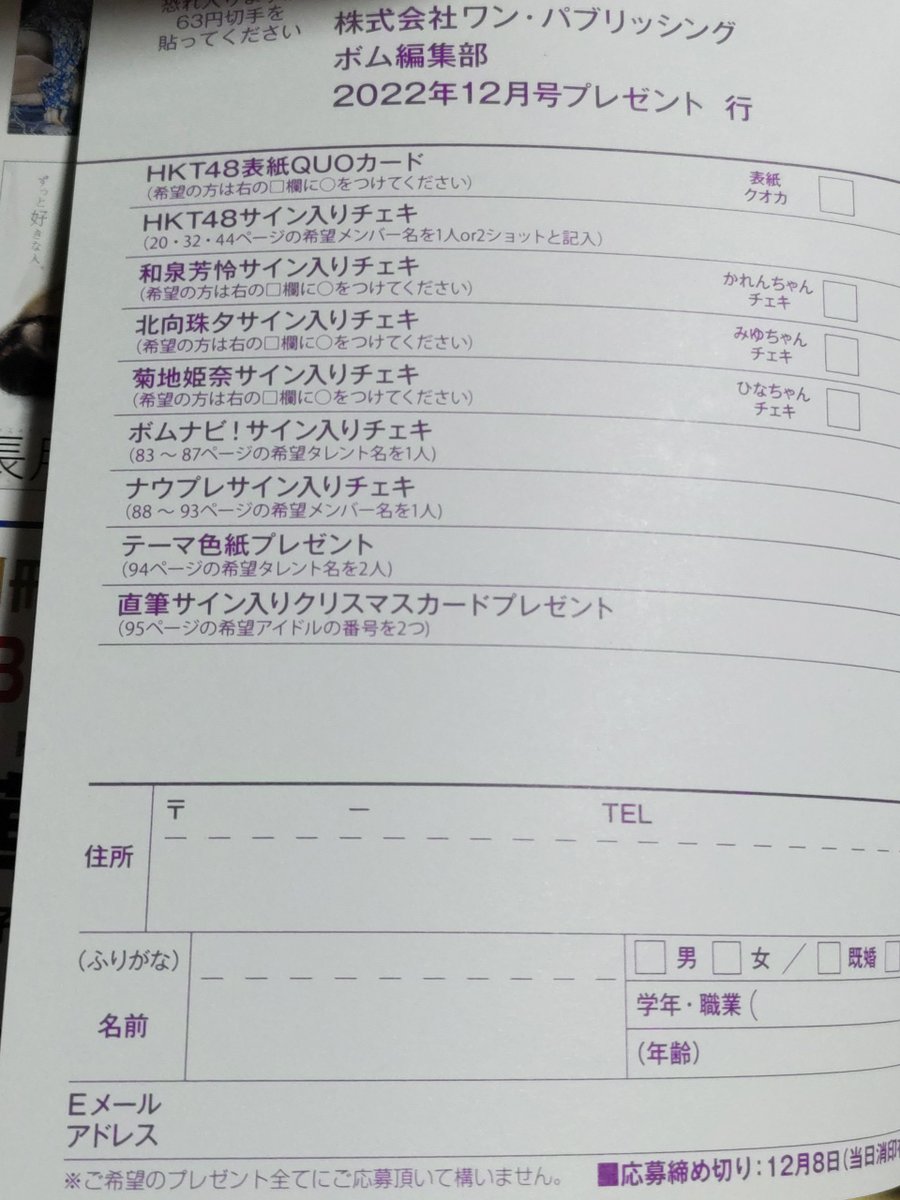 63円切手を
貼ってください
株式会社ワン・パブリッシング
ボム編集部
2022年12月号プレゼント 行
HKT48表紙QUOカード
(希望の方は右の□欄に○をつけてください)
表紙
クオカ
HKT48サイン入りチェキ
(20・32・44ページの希望メンバー名を1人or2ショットと記入)
和泉芳怜サイン入りチェキ
(希望の方は右の□欄に○をつけてください)
かれんちゃん
チェキ
北向珠夕サイン入りチェキ
(希望の方は右の□欄に○をつけてください)
みゆちゃん
チェキ
菊地姫奈サイン入りチェキ
(希望の方は右の□欄に○をつけてください)
ひなちゃん
チェキ
ボムナビ!サイン入りチェキ
(83〜87ページの希望タレント名を1人)
ナウプレサイン入りチェキ
(88〜93ページの希望メンバー名を1人)
テーマ色紙プレゼント
(94ページの希望タレント名を2人)
直筆サイン入りクリスマスカードプレゼント
(95ページの希望アイドルの番号を2つ)
住所
〒 ー TEL
(ふりがな)
名前
□男 □女／□既婚
学年・職業(
(年齢)
Eメール
アドレス
※ご希望のプレゼント全てにご応募頂いて構いません。
■応募締め切り:12月8日(当日消印
ずっと好きな人。